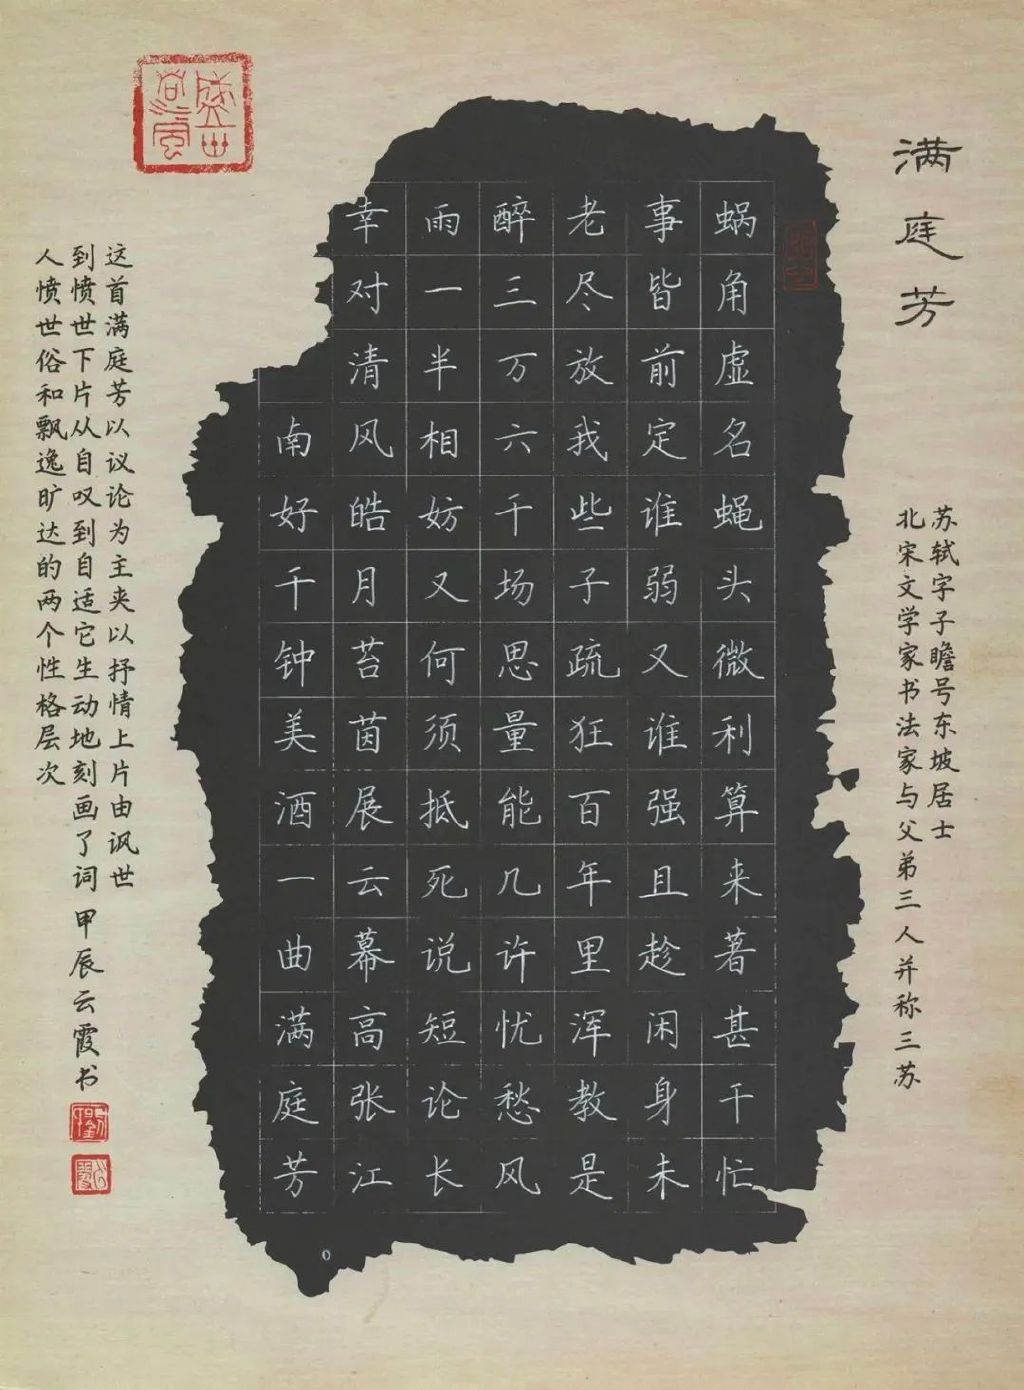 满庭芳
苏轼字子瞻号东坡居士
北宋文学家书法家与父弟三人并称三苏
蜗角虚名蝇头微利算来著甚干忙
事皆前定谁弱又谁强且趁闲身未
老尽放我些子疏狂百年里浑教是
醉三万六千场思量能几许忧愁风
雨一半相妨又何须抵死说短论长
幸对清风皓月苔茵展云幕高张江
南好千钟美酒一曲满庭芳
这首满庭芳以议论为主夹以抒情上片由讽世
到愤世下片从自叹到自适它生动地刻画了词
人愤世俗和飘逸旷达的两个性格层次
甲辰云霞书